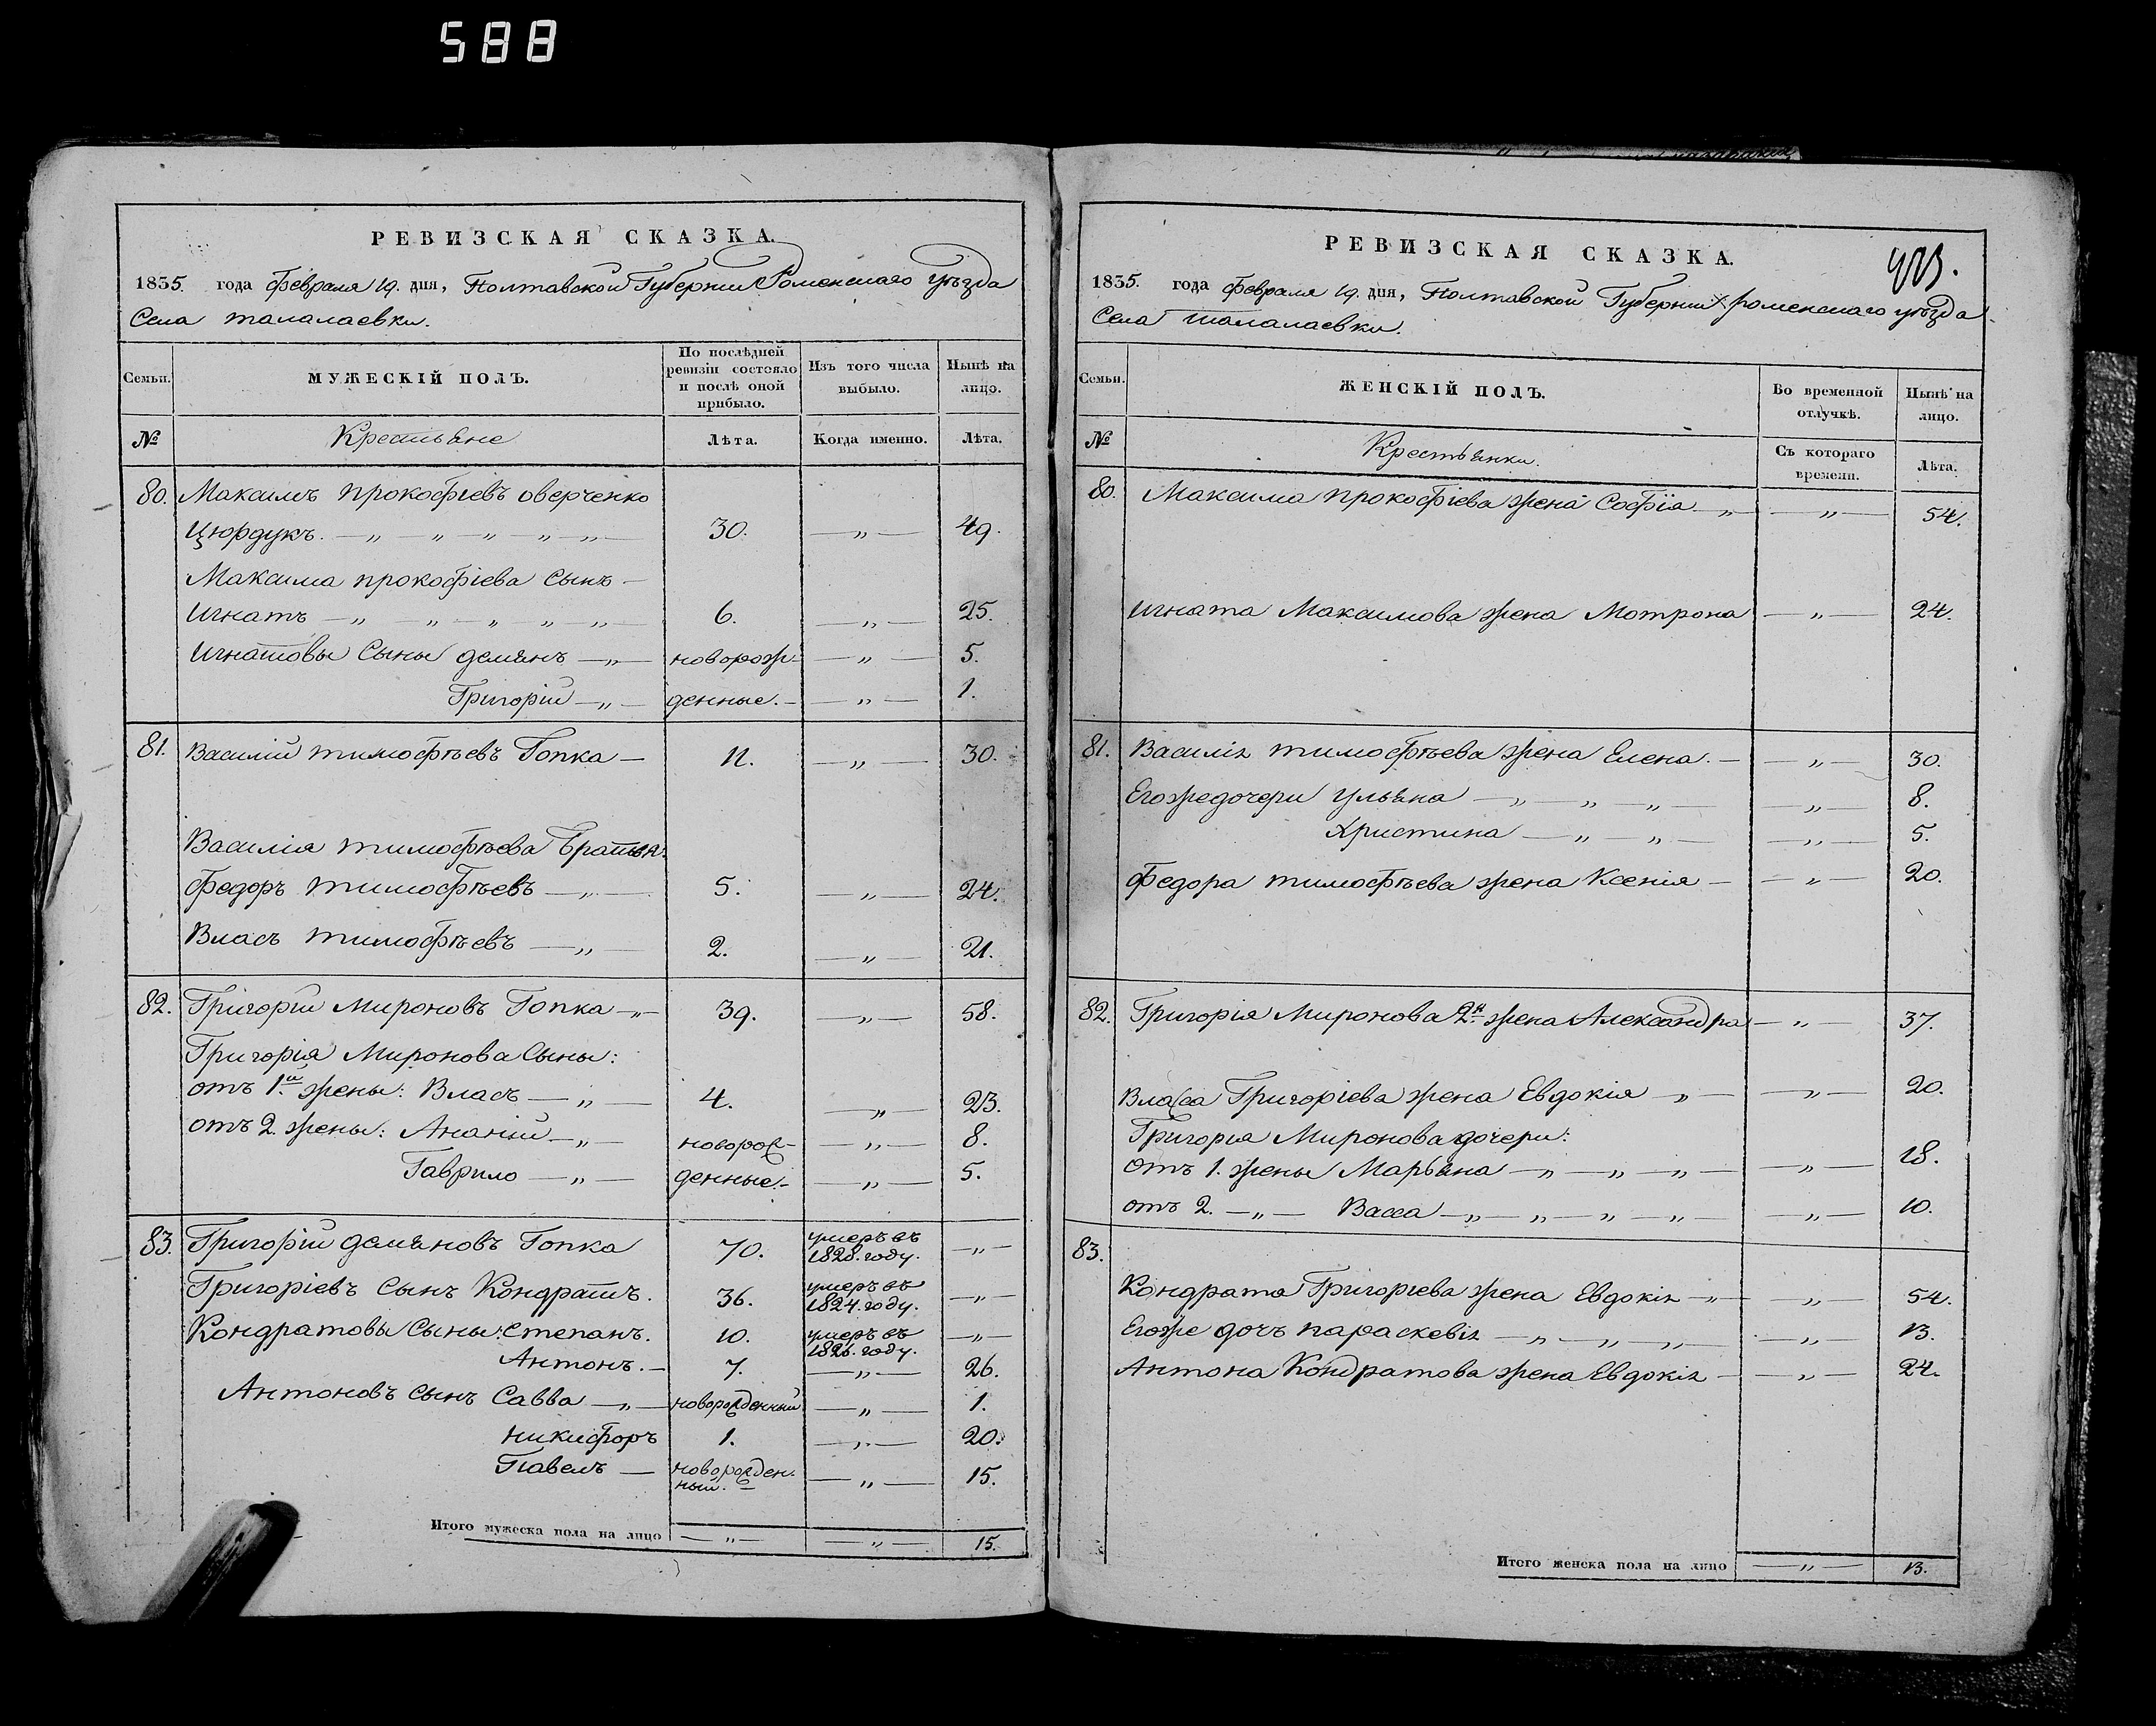 588
РЕВИЗСКАЯ СКАЗКА.
1835. года Февраля 19. дня, Полтавской Губернии Роменскаго уѣзда
Села талалаевки.
Семьи.
МУЖЕСКІЙ ПОЛЪ.
По послѣдней ревизіи состояло и послѣ оной прибыло.
Изъ того числа выбыло.
Нынѣ на лицо.
№
Крестьяне
Лѣта.
Когда именно.
Лѣта.
80. Максимъ прокофіевъ оверченко
Цюрдукъ. — „ — „ — „ — „ — „ — 30. — „ — 49.
Максима прокофіева Сынъ —
Игнатъ — „ — „ — „ — „ — „ — 6. — „ — 25.
Игнатовы Сыны демянъ — „ — новорож- — „ — 5.
Григорій — „ — денные. — — „ — 1.
81. Василій тимофѣевъ Гопка — 11. — „ — 30.
Василія тимофѣева Братья:
Федоръ тимофѣевъ — „ — 5. — „ — 24.
Власъ тимофѣевъ — „ — 2. — „ — 21.
82. Григорій Мироновъ Гопка — „ — 39. — „ — 58.
Григорія Миронова Сыны:
отъ 1й жены: Власъ — „ — 4. — „ — 23.
отъ 2. жены: Ананій — „ — новорож- — „ — 8.
Гаврило — „ — денные. — — „ — 5.
83. Григорій демяновъ Гопка 70. умеръ въ 1828. году. — „ —
Григоріевъ Сынъ Кондратъ. 36. умеръ въ 1824. году. — „ —
Кондратовы Сыны: Степанъ. 10. умеръ въ 1826. году. — „ —
Антонъ. — 7. — „ — 26.
Антоновъ сынъ Савва — „ — новорожденный — „ — 1.
никифоръ 1. — „ — 20.
Павелъ — новорожден-ный. — „ — 15.
Итого мужеска пола на лицо — „ — — „ — 15.
РЕВИЗСКАЯ СКАЗКА.
1835. года Февраля 19. дня, Полтавской Губерніи роменскаго уѣзда
Села талалаевки.
Семьи.
ЖЕНСКІЙ ПОЛЪ.
Во временной отлучкѣ.
Нынѣ на лицо.
№
Крестьянки.
Съ котораго времени.
Лѣта.
80. Максима прокофіева жена Софія — „ — „ — 54.
Игната Максимова жена Мотрона — „ — 24.
81. Василія тимофѣева жена Елена. — — „ — 30.
Егожедочери Ульяна — „ — „ — „ — — „ — 8.
Христина — „ — „ — — „ — 5.
Федора тимофѣева жена Ксенія — — „ — 20.
82. Григорія Миронова 2я жена Александра — „ — 37.
Власа Григоріева жена Евдокія — „ — — „ — 20.
Григорія Миронова дочери:
отъ 1. жены Марьяна — „ — „ — „ — — „ — 18.
отъ 2. — „ — Васса — „ — „ — „ — „ — — „ — 10.
83.
Кондрата Григоріева жена Евдокія — „ — — „ — 54.
Егоже дочъ параскевія — „ — „ — „ — — „ — 13.
Антона Кондратова жена Евдокія — — „ — 24.
Итого женска пола на лицо — „ — 13.